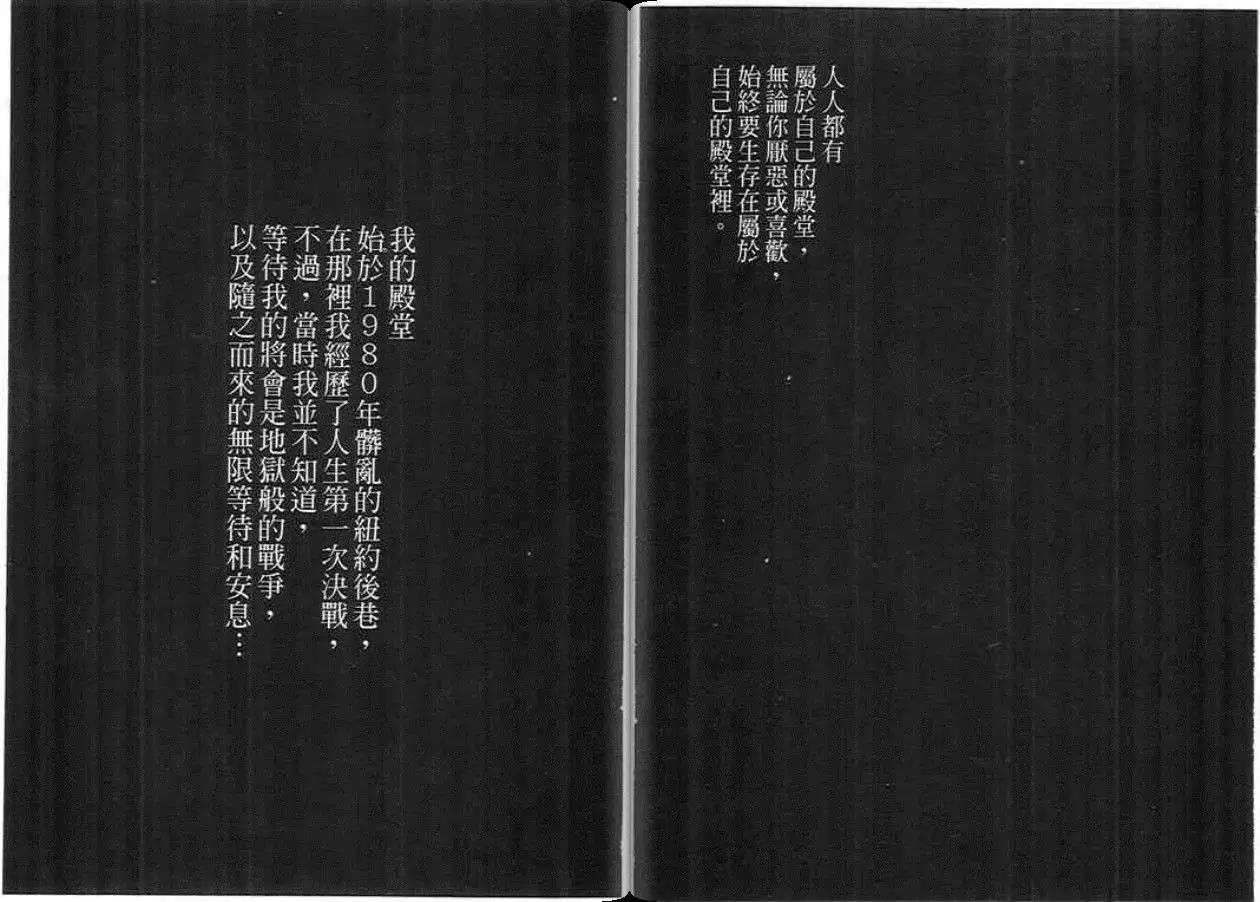 人人都有
屬於自己的殿堂，
無論你厭惡或喜歡，
始終要生存在屬於
自己的殿堂裡。
我的殿堂
始於1980年髒亂的紐約後巷，
在那裡我經歷了人生第一次決戰，
不過，當時我並不知道，
等待我的將會是地獄般的戰爭，
以及隨之而來的無限等待和安息…